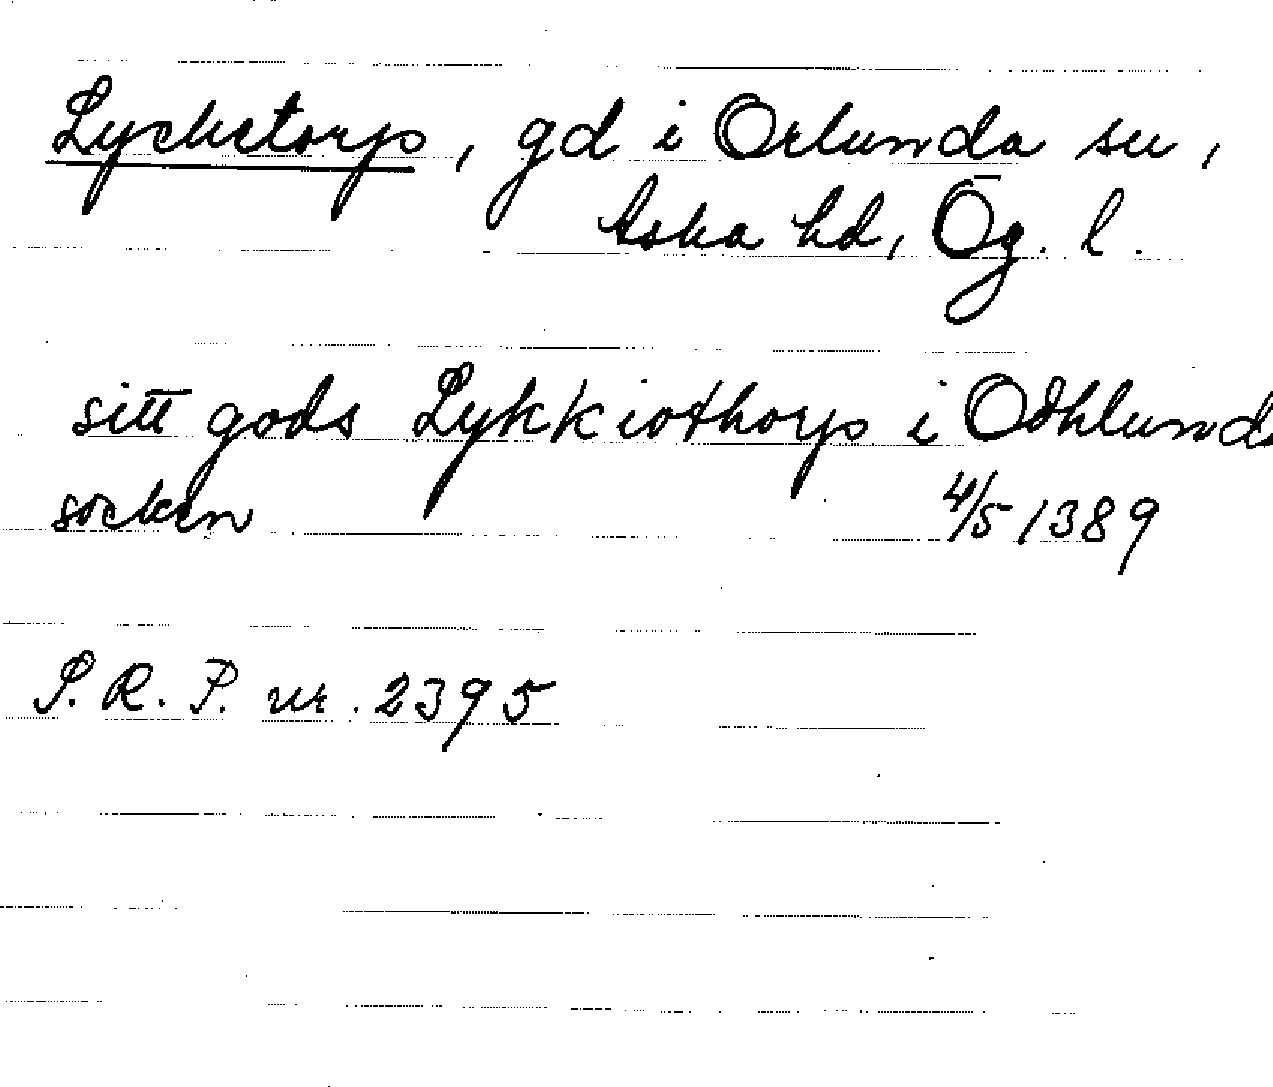 Lycketorp, gd i Orlunda sn,
Aska hd, Ög. l.
sitt gods Lykkiothorp i Odhlunda
socken 4/5 1389
S. R. P. nr. 2395